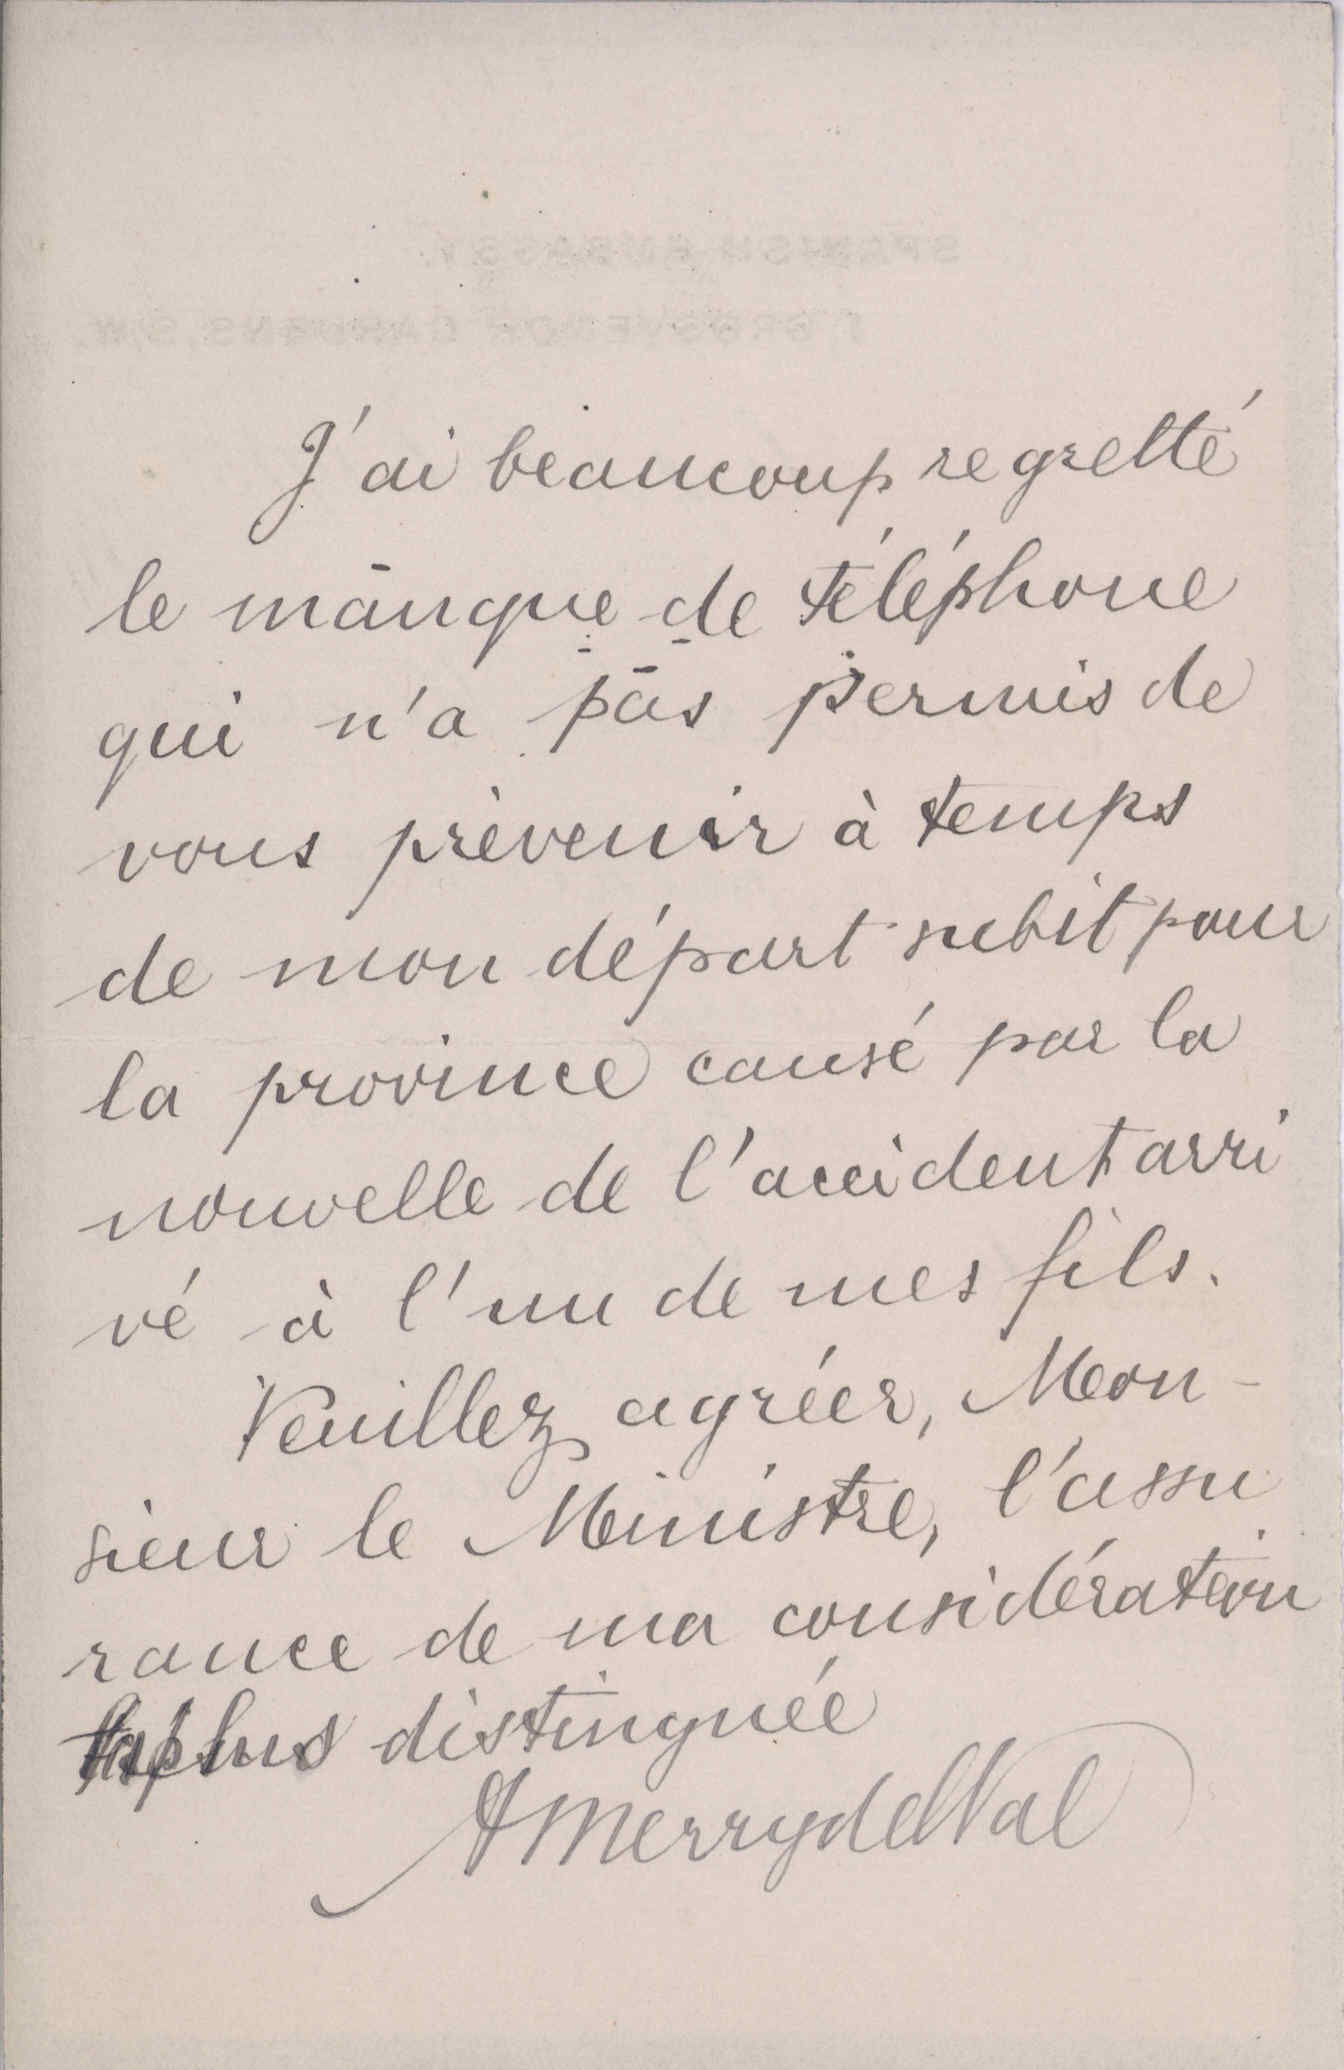 J'ai beaucoup regretté
le manque de téléphone
qui n'a pas permis de
vous prévenir à temps
de mon départ subit pour
la province causé par la
nouvelle de l'accident arri
vé à l'un de mes fils.
Veuillez agréer, Mon-
sieur le Ministre, l'assu
rance de ma considération
la plus distinguée
A Merry del Val